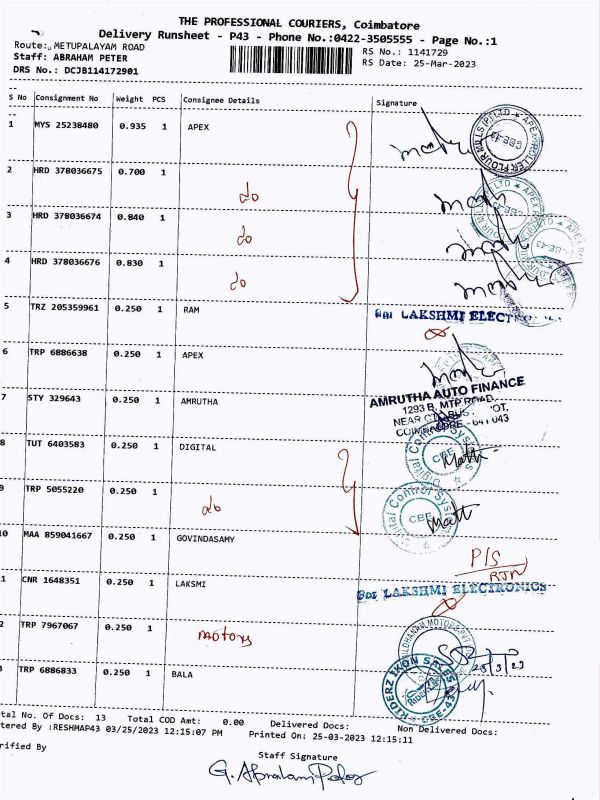 THE PROFESSIONAL COURIERS, Coimbatore
Delivery Runsheet - P43 - Phone No.:0422-3505555 - Page No.:1
Route: METUPALAYAM ROAD
RS No.: 1141729
Staff: ABRAHAM PETER
RS Date: 25-Mar-2023
DRS No.: DCJB114172901
S No Consignment No Weight PCS Consignee Details Signature
1 MYS 25238480 0.935 1 APEX
2 HRD 378036675 0.700 1 do
3 HRD 378036674 0.840 1 do
4 HRD 378036676 0.830 1 do
5 TRZ 205359961 0.250 1 RAM
SRI LAKSHMI ELECTRONICS
6 TRP 6886638 0.250 1 APEX
7 STY 329643 0.250 1 AMRUTHA
AMRUTHA AUTO FINANCE
1293 B, MTP ROAD,
8 TUT 6403583 0.250 1 DIGITAL
Digital Control Systems
CBE
9 TRP 5055220 0.250 1 do
Digital Control Systems
CBE
10 MAA 859041667 0.250 1 GOVINDASAMY
P/S
RTN
CNR 1648351 0.250 1 LAKSMI
SRI LAKSHMI ELECTRONICS
TRP 7967067 0.250 1 motors
25/3/23
TRP 6886833 0.250 1 BALA
tal No. Of Docs: 13 Total COD Amt: 0.00 Delivered Docs: Non Delivered Docs:
tered By :RESHMAP43 03/25/2023 12:15:07 PM Printed On: 25-03-2023 12:15:11
rified By
Staff Signature
G. Abraham Peter